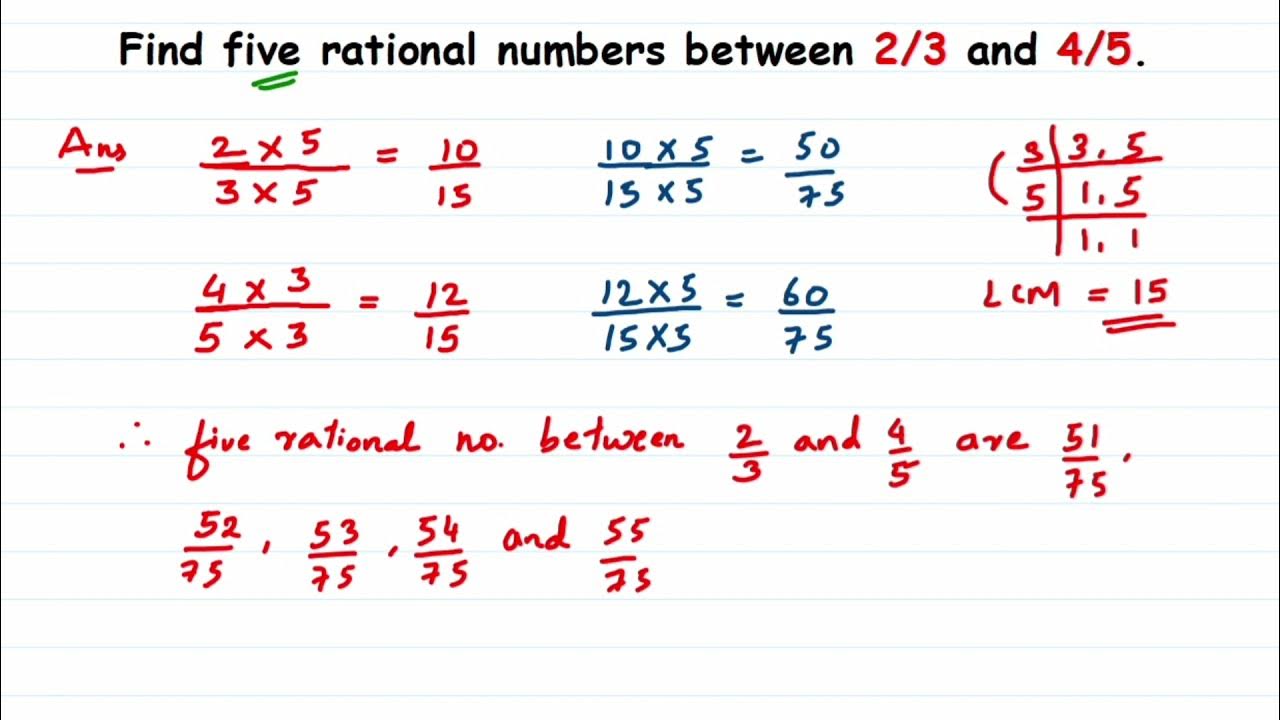 Find five rational numbers between 2/3 and 4/5.
Ans 2 × 5 / 3 × 5 = 10/15 10 × 5 / 15 × 5 = 50/75
3 | 3, 5
5 | 1, 5
1, 1
4 × 3 / 5 × 3 = 12/15 12 × 5 / 15 × 5 = 60/75 LCM = 15
∴ five rational no. between 2/3 and 4/5 are 51/75,
52/75, 53/75, 54/75 and 55/75